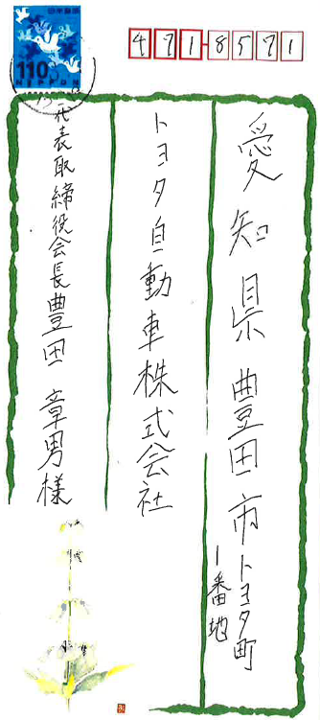 日本郵便
110
NIPPON
471-8571
愛知県豊田市トヨタ町
1番地
トヨタ自動車株式会社
代表取締役会長豊田章男様